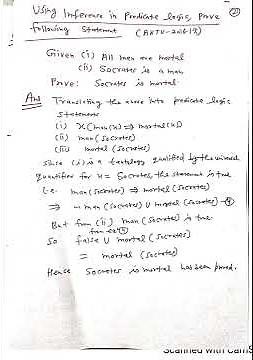 Using Inference in Predicate logic, prove
following statement (AKTU-2016-17)
Given (i) All men are mortal
(ii) Socrates is a man
Prove: Socrates is mortal.
Ans Translating the above into predicate logic
statements
(i) ∀x(man(x) ⇒ mortal(x))
(ii) man (Socrates)
(iii) mortal (Socrates)
Since (i) is a tautology qualified by the universal
quantifier for x = Socrates, the statement is true
i.e. man(socrates) ⇒ mortal (socrates)
⇒ ¬ man (socrates) ∪ mortal (socrates)
But from (ii) man (socrates) is true
from
So false ∪ mortal (socrates)
= mortal (socrates)
Hence Socrates is mortal has been proved.
Scanned with Cam